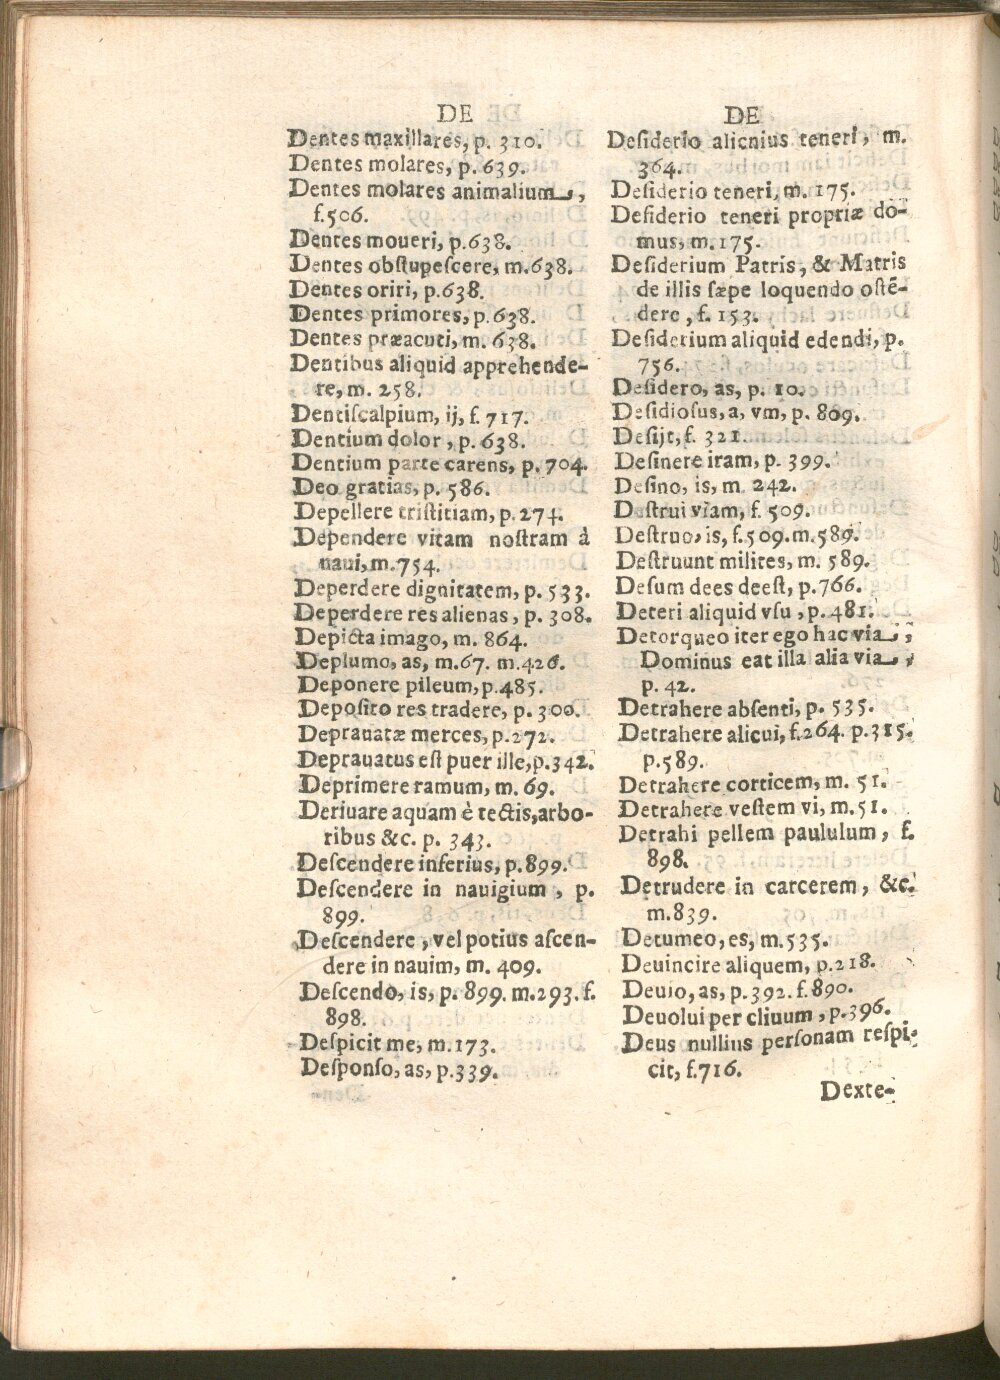 DE
Dentes maxillares, p. 310.
Dentes molares, p. 639.
Dentes molares animalium,
f. 506.
Dentes moueri, p. 638.
Dentes obſtupeſcere, m. 638.
Dentes oriri, p. 638.
Dentes primores, p. 638.
Dentes præacuti, m. 638.
Dentibus aliquid apprehende-
re, m. 258.
Dentiſcalpium, ij, f. 717.
Dentium dolor, p. 638.
Dentium parte carens, p. 704.
Deo gratias, p. 586.
Depellere triſtitiam, p. 274.
Dependere vitam noſtram à
naui, m. 754.
Deperdere dignitatem, p. 533.
Deperdere res alienas, p. 308.
Depicta imago, m. 864.
Deplumo, as, m. 67. m. 426.
Deponere pileum, p. 485.
Depoſito res tradere, p. 300.
Deprauatæ merces, p. 272.
Deprauatus eſt puer ille, p. 342.
Deprimere ramum, m. 69.
Deriuare aquam è tectis, arbo-
ribus &c. p. 343.
Deſcendere inferius, p. 899.
Deſcendere in nauigium, p.
899.
Deſcendere, vel potius aſcen-
dere in nauim, m. 409.
Deſcendo, is, p. 899. m. 293. f.
898.
Deſpicit me, m. 173.
Deſponſo, as, p. 339.
DE
Deſiderio alicnius teneri, m.
364.
Deſiderio teneri, m. 175.
Deſiderio teneri propriæ do-
mus, m. 175.
Deſiderium Patris, & Matris
de illis ſæpe loquendo oſtẽ-
dere, f. 153.
Deſiderium aliquid edendi, p.
756.
Deſidero, as, p. 10.
Deſidioſus, a, vm, p. 809.
Deſijt, f. 321.
Deſinere iram, p. 399.
Deſino, is, m. 242.
Deſtrui viam, f. 509.
Deſtruo, is, f. 509. m. 589.
Deſtruunt milites, m. 589.
Deſum dees deeſt, p. 766.
Deteri aliquid vſu, p. 481.
Detorqueo iter ego hac via,
Dominus eat illa alia via,
p. 42.
Detrahere abſenti, p. 535.
Detrahere alicui, f. 264. p. 315.
p. 589.
Detrahere corticem, m. 51.
Detrahere veſtem vi, m. 51.
Detrahi pellem paululum, f.
898.
Detrudere in carcerem, &c.
m. 839.
Detumeo, es, m. 535.
Deuincire aliquem, p. 218.
Deuio, as, p. 392. f. 890.
Deuolui per cliuum, p. 396.
Deus nullius perſonam reſpi-
cit, f. 716.
Dexte-